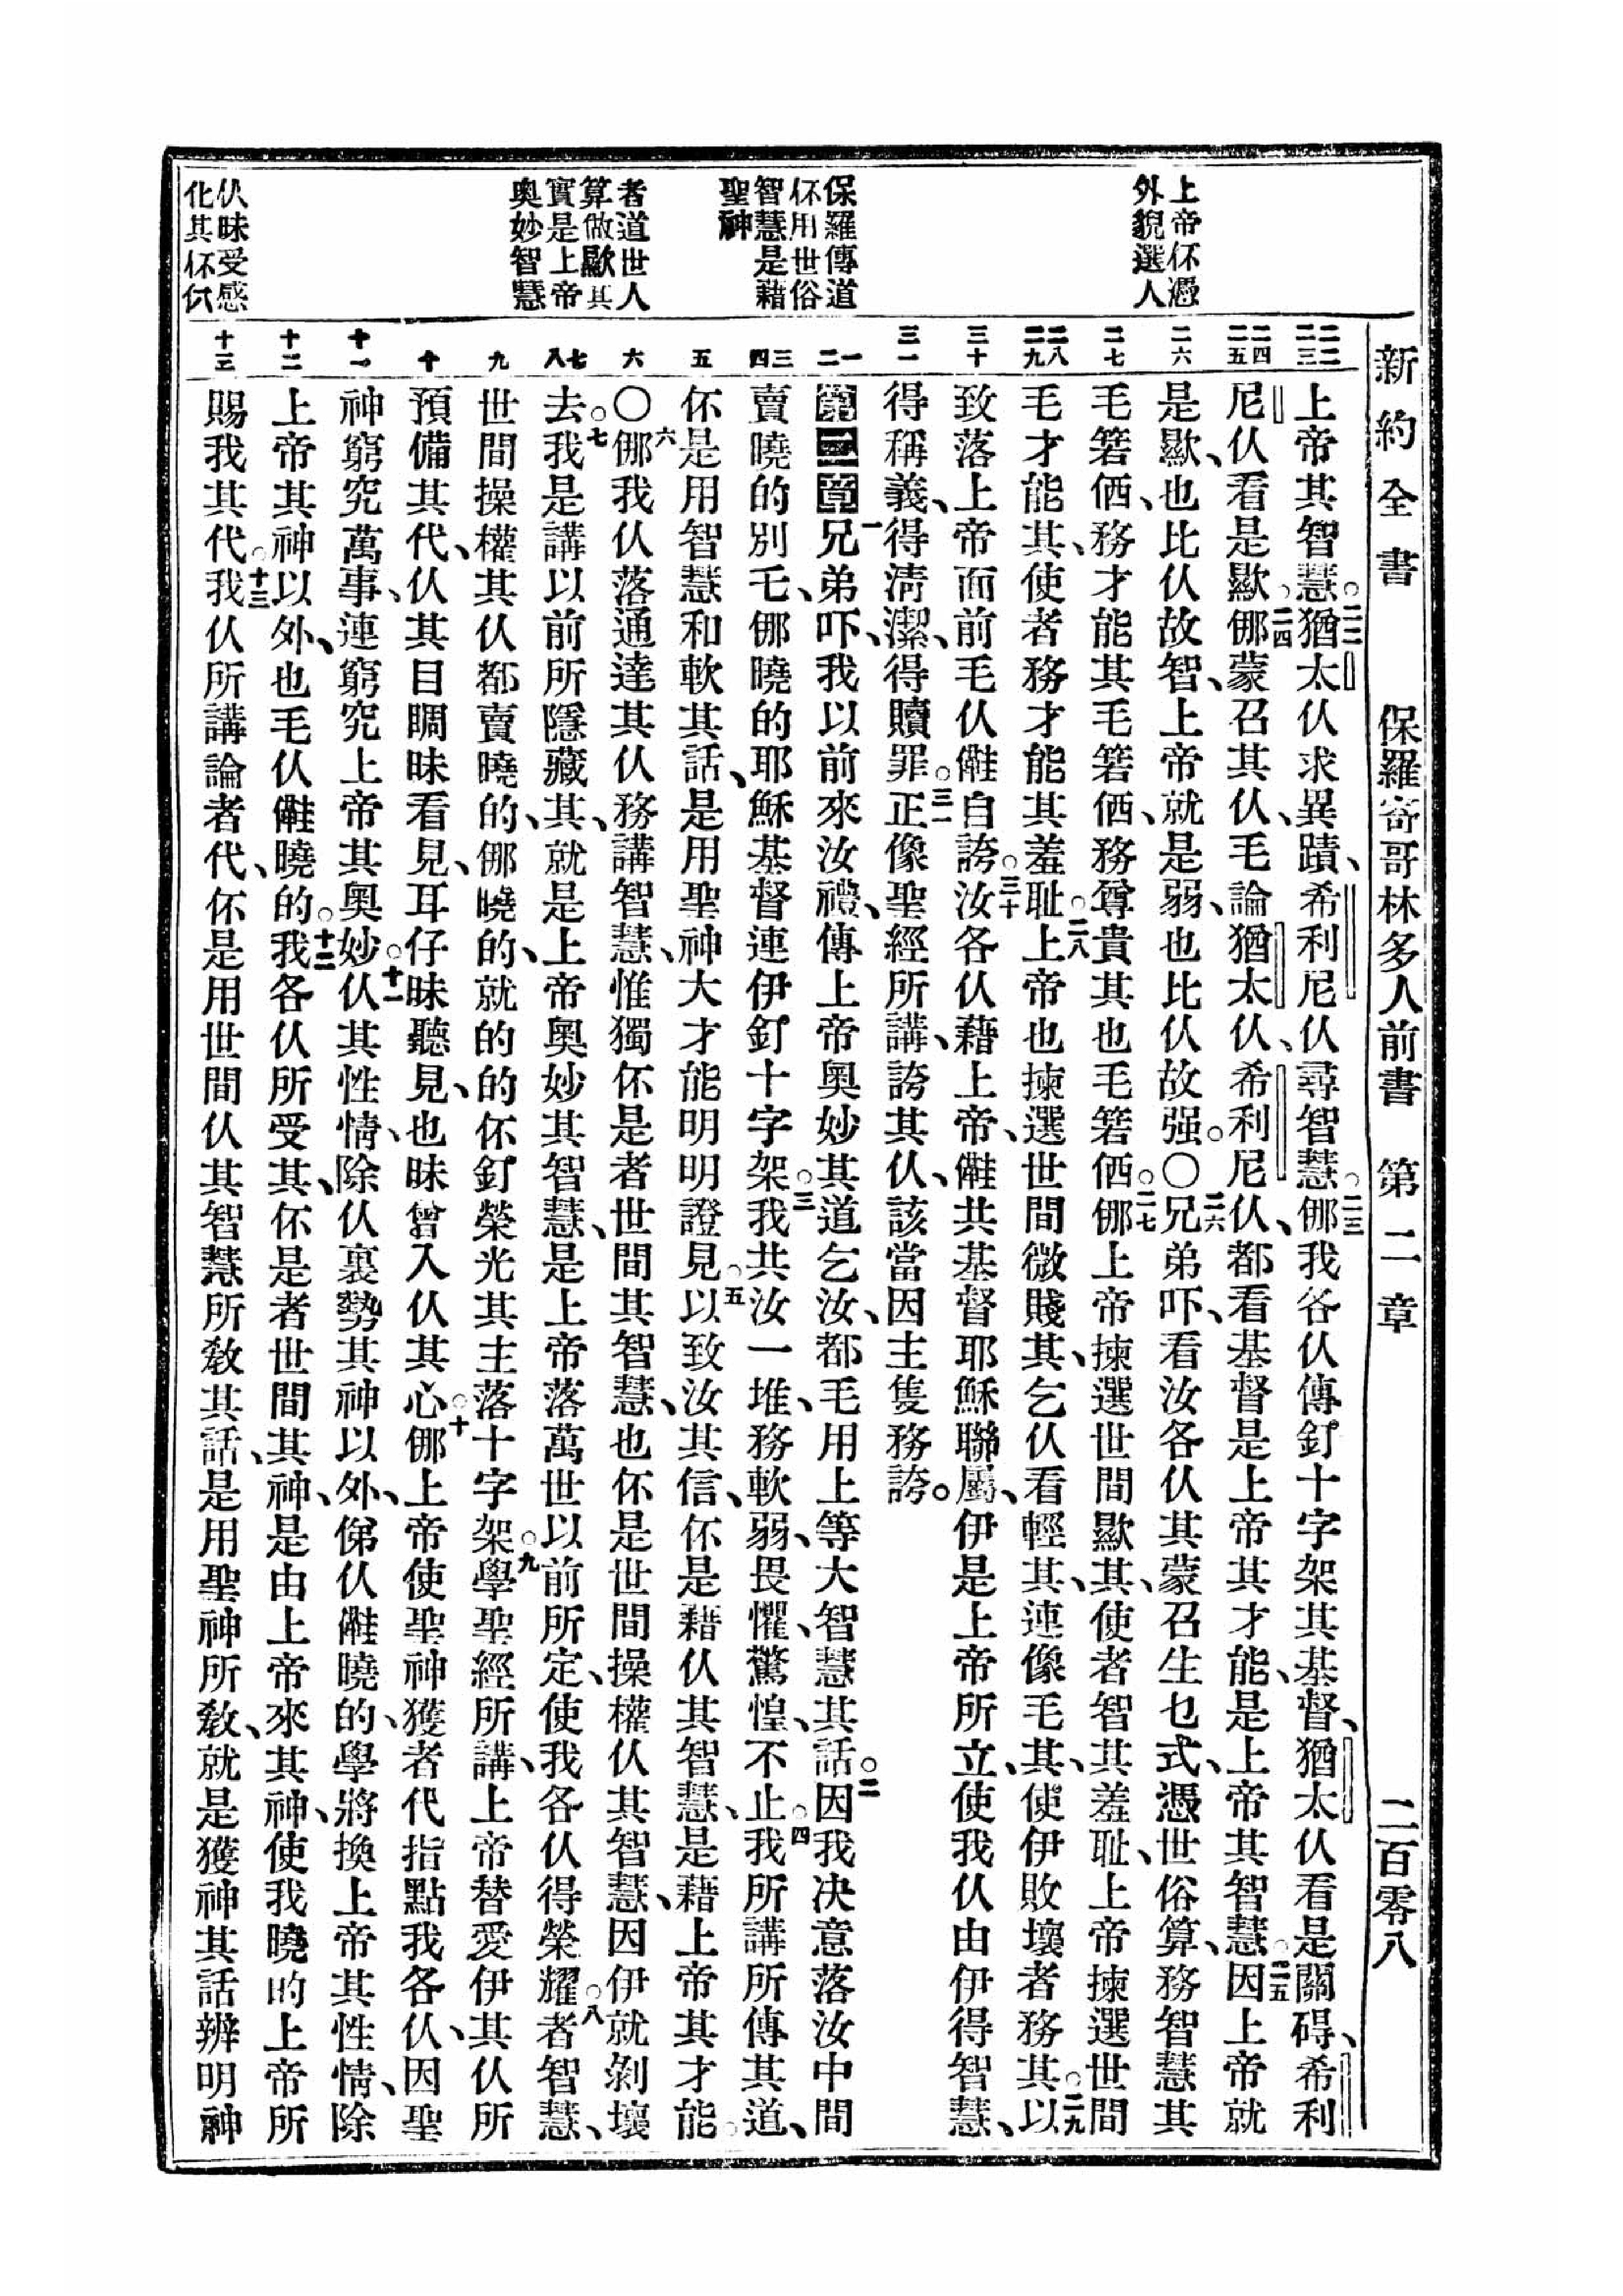 新約全書 保羅寄哥林多人前書 第二章 二百零八
上帝伓憑
外貌選人
保羅傳道
伓用世俗
智慧是藉
聖神
者道世人
算做歞其
實是上帝
奧妙智慧
仈昧受感
化其伓伩
二二 二三
二四 二五
二六
二七
二八 二九
三十
三一
一 二
三 四
五
六
七 八
九
十
十一
十二
十三
上帝其智慧。二二猶太仈求異蹟、希利尼仈尋智慧。二三㑚我各仈傳釘十字架其基督、猶太仈看是關碍、希利
尼仈看是歞。二四㑚蒙召其仈、毛論猶太仈、希利尼仈、都看基督是上帝其才能、是上帝其智慧。二五因上帝就
是歞、也比仈故智、上帝就是弱、也比仈故强。〇二六兄弟吓、看汝各仈其蒙召生乜式、憑世俗算、務智慧其
毛箬価、務才能其毛箬価、務尊貴其也毛箬価。二七㑚上帝揀選世間歞其、使者智其羞耻、上帝揀選世間
毛才能其、使者務才能其羞耻。二八上帝也揀選世間微賤其、乞仈看輕其、連像毛其、使伊敗壞者務其。二九以
致落上帝面前毛仈㒕自誇。三十汝各仈藉上帝、㒕共基督耶穌聯屬、伊是上帝所立、使我仈由伊得智慧、
得稱義、得淸潔、得贖罪。三一正像聖經所講、誇其仈、該當因主隻務誇。
第二章 一兄弟吓、我以前來汝禮、傳上帝奧妙其道乞汝、都毛用上等大智慧其話。二因我决意落汝中間
賣曉的別乇、㑚曉的耶穌基督連伊釘十字架。三我共汝一堆、務軟弱、畏懼、驚惶、不止。四我所講所傳其道、
伓是用智慧和軟其話、是用聖神大才能明明證見。五以致汝其信、伓是藉仈其智慧、是藉上帝其才能。
〇六㑚我仈落通達其仈務講智慧、惟獨伓是者世間其智慧、也伓是世間操權仈其智慧、因伊就剝壞
去。七我是講以前所隱藏其、就是上帝奧妙其智慧、是上帝落萬世以前所定、使我各仈得榮耀。八者智慧、
世間操權其仈都賣曉的、㑚曉的、就的的伓釘榮光其主落十字架。九學聖經所講、上帝替愛伊其仈所
預備其代、仈其目睭昧看見、耳仔昧聽見、也昧曾入仈其心。十㑚上帝使聖神獲者代指點我各仈、因聖
神窮究萬事、連窮究上帝其奧妙。十一仈其性情、除仈裏勢其神以外、㑚仈㒕曉的、學將換上帝其性情、除
上帝其神以外、也毛仈㒕曉的。十二我各仈所受其、伓是者世間其神、是由上帝來其神、使我曉的上帝所
賜我其代。十三我仈所講論者代、伓是用世間仈其智慧所敎其話、是用聖神所敎、就是獲神其話辨明神